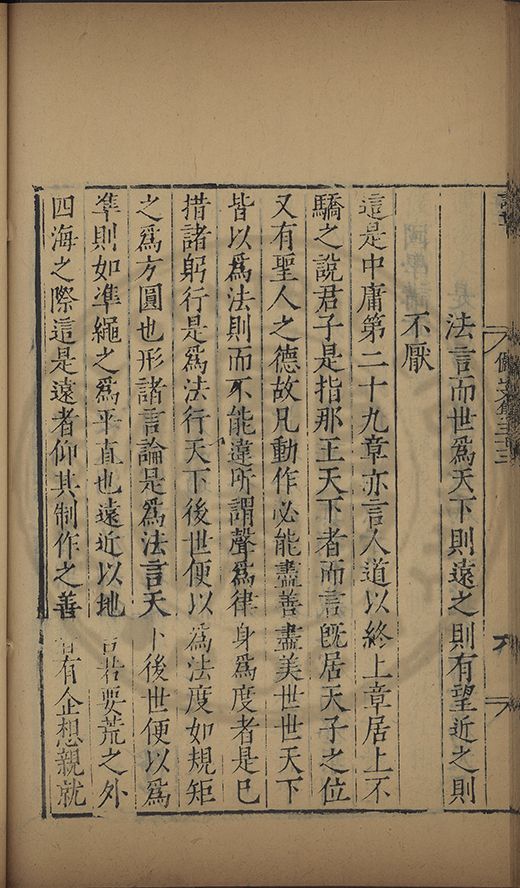 法言而世爲天下則遠之則有望近之則
不厭
這是中庸第二十九章亦言人道以終上章居上不
驕之說君子是指那王天下者而言旣居天子之位
又有聖人之德故凡動作必能盡善盡美世世天下
皆以爲法則而不能違所謂聲爲律身爲度者是巳
措諸躬行是爲法行天下後世便以爲法度如規矩
之爲方圓也形諸言論是爲法言天下後世便以爲
準則如準繩之爲平直也遠近以地言若要荒之外
四海之際這是遠者仰其制作之善皆有企想親就